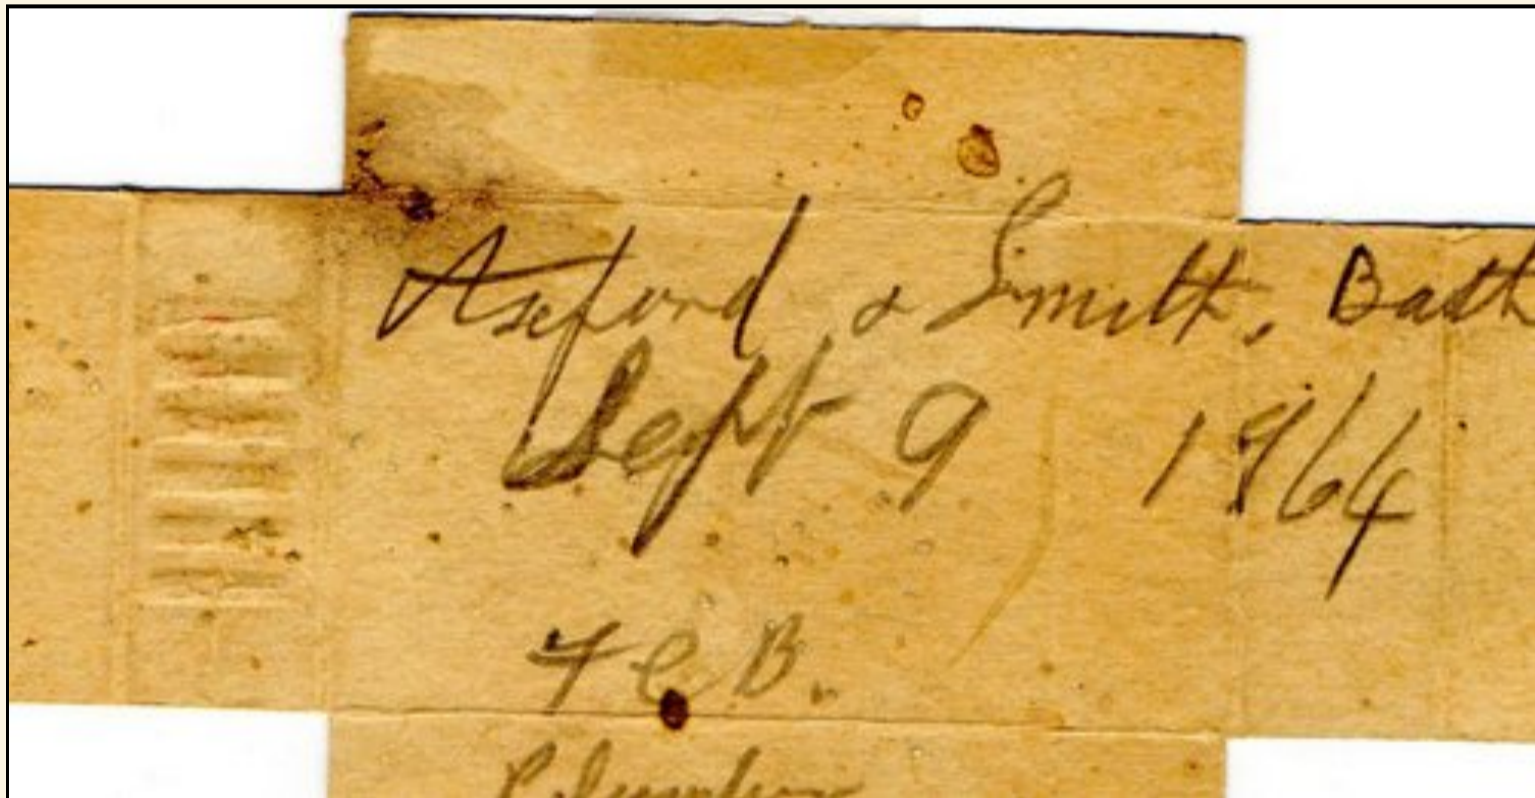 Axford & Smith, Bath
Sept 9 1864
F C B.